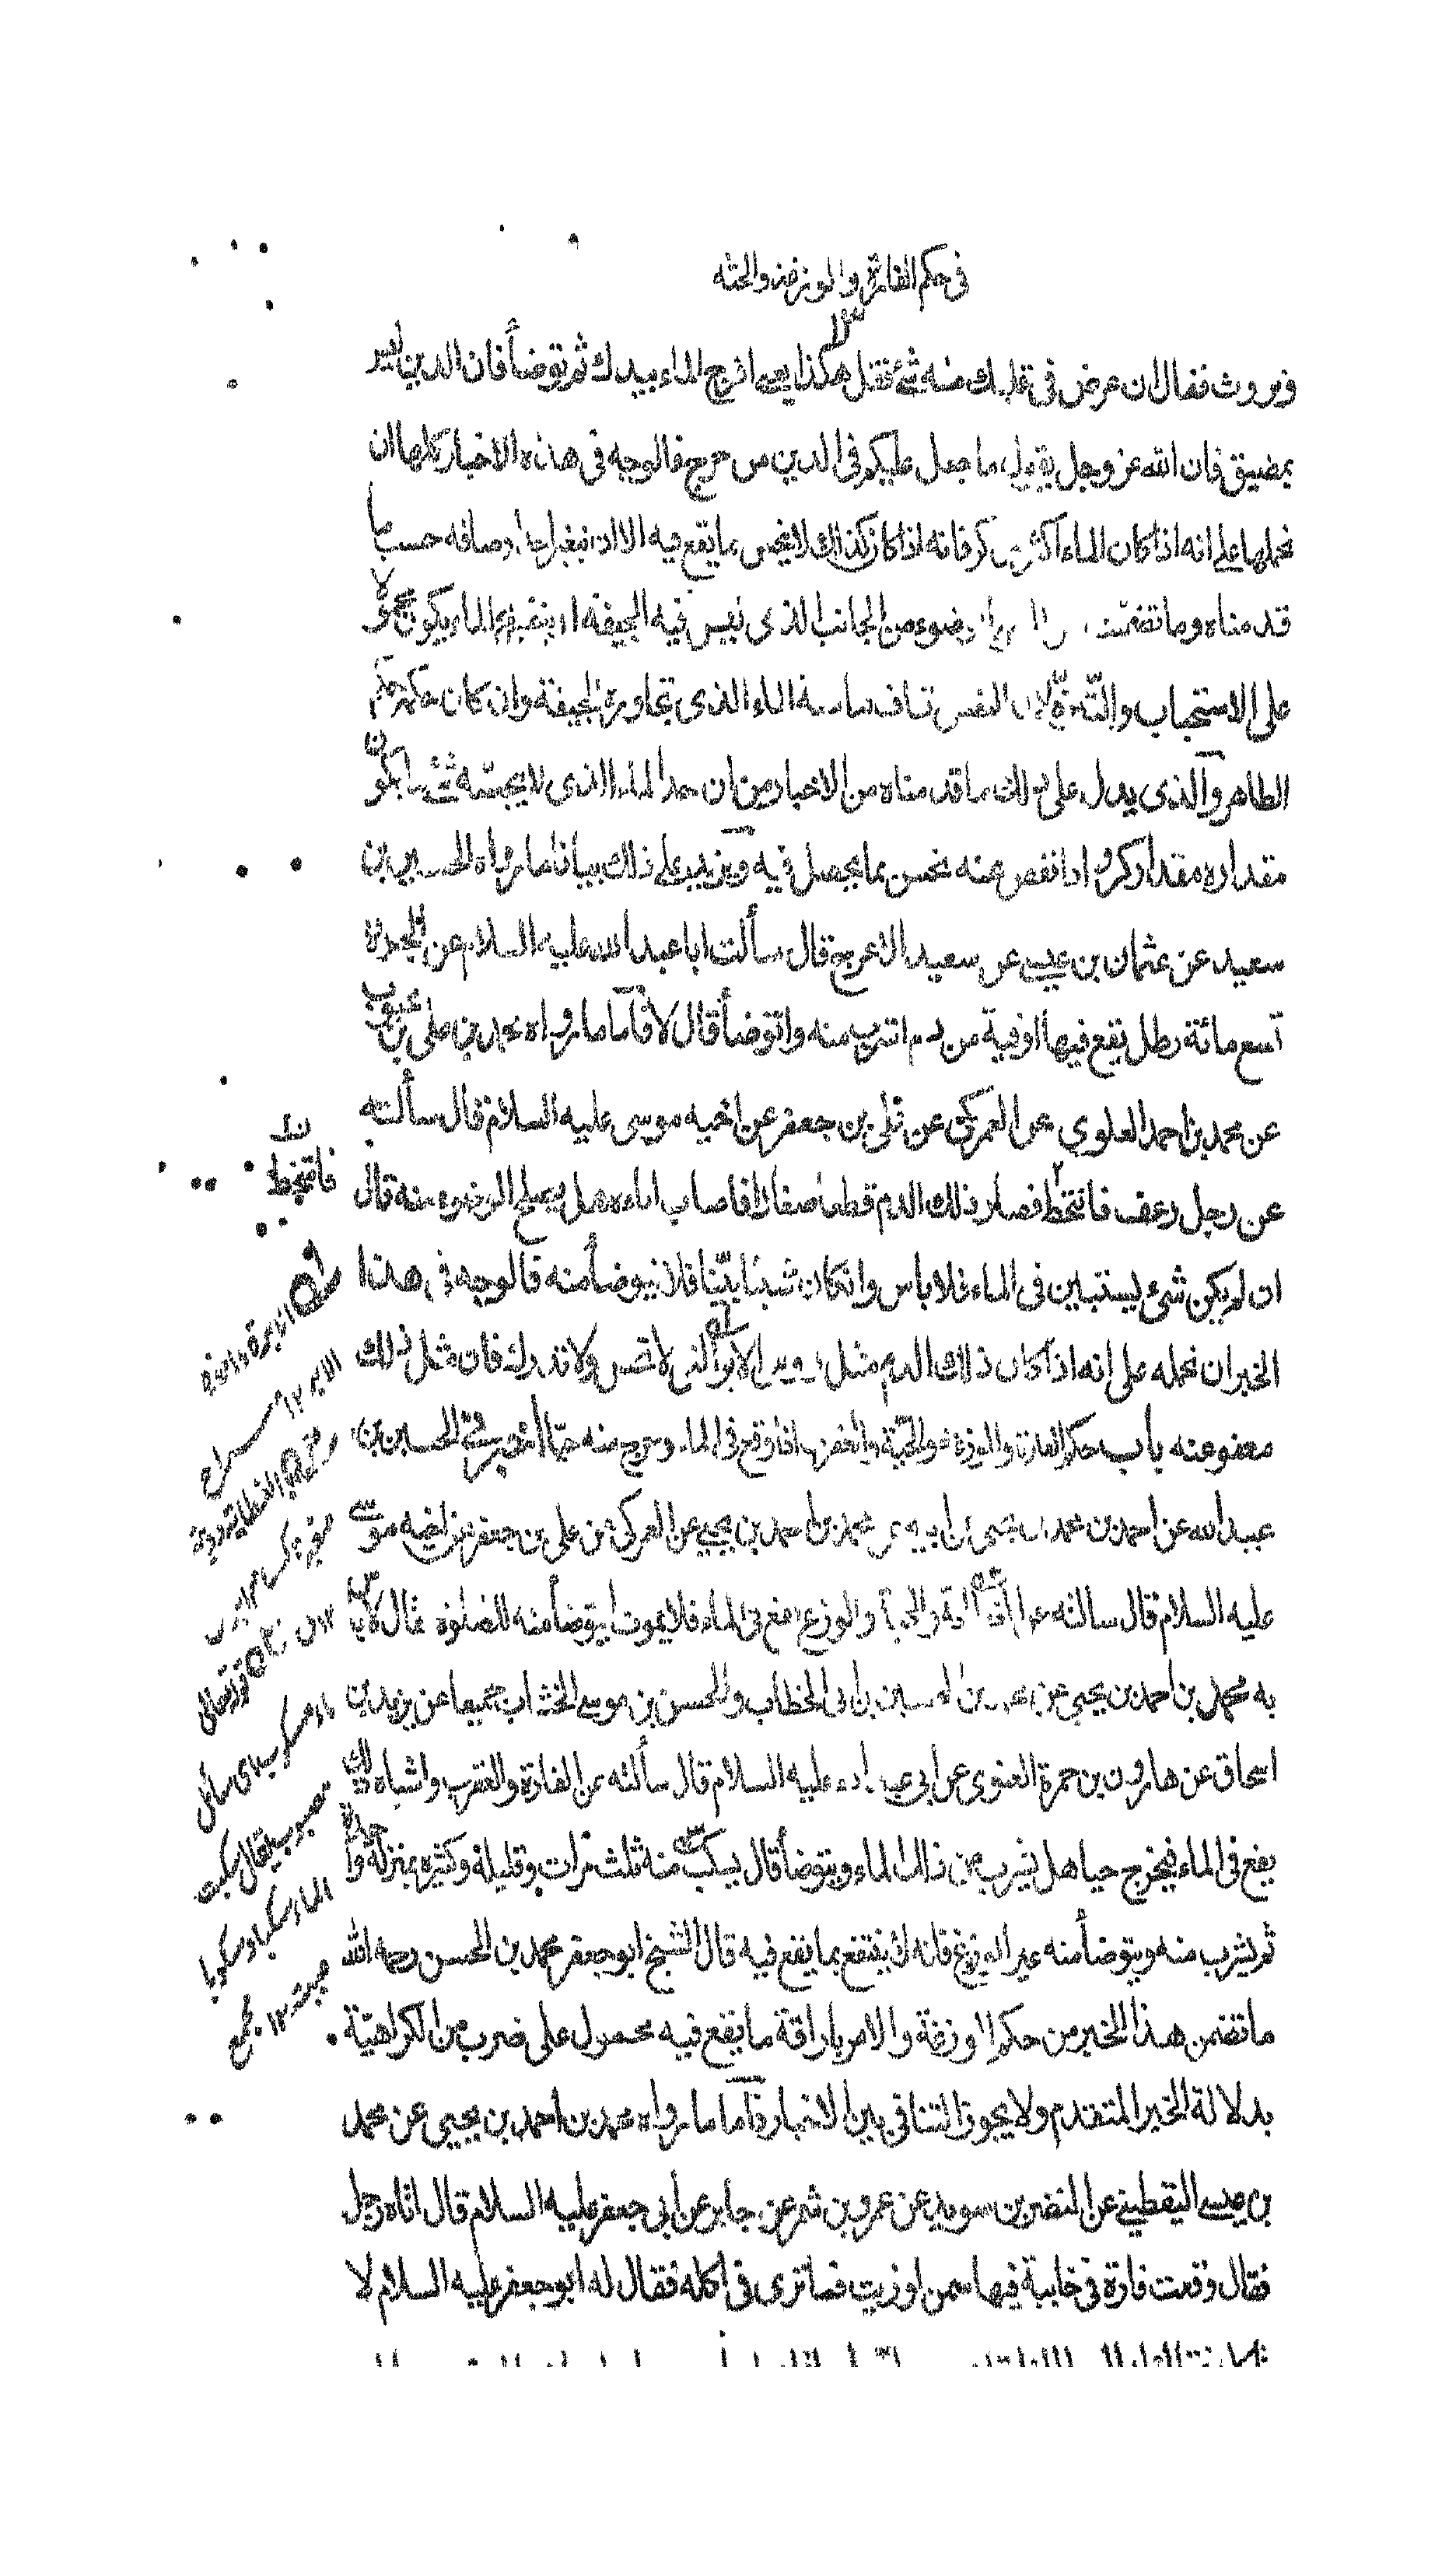 في حكم الفارة والوزغة والحية
١٣
وبروث فقال ان عرض في قلبك منه شئ فقل هكذا يعني افرج الماء بيدك ثم توضأ فان الدين ليس
بمضيق فان الله عز وجل يقول ما جعل عليكم في الدين من حرج فالوجه في هذه الاخبار كلها ان
نحملها على انه اذا كان الماء اكثر من كر فانه اذا كان كذلك لا ينجس بما يقع فيه الا ان يتغير احد اوصافه حسب ما
قدمناه وما تضمنت من الوضوء من الجانب الذي ليس فيه الجيفة او يتغير الماء يكون محمولا
على الاستحباب والتنزه لان النفس تعاف مماسة الماء الذي تجاوره الجيفة وان كان حكمه حكم
الطاهر والذي يدل على ذلك ما قدمناه من الاخبار من ان حد الماء الذي لا ينجسه شئ ما يكون
مقداره مقدار كر واذا نقص عنه نجس بما يحصل فيه ويزيد على ذلك بيانا ما رواه الحسين بن
سعيد عن عثمان بن عيسى عن سعيد الاعرج قال سألت ابا عبد الله عليه السلام عن الجرة
تسع مائة رطل يقع فيها اوقية من دم اشرب منه واتوضأ قال لا فأما ما رواه محمد بن علي بن محبوب
عن محمد بن احمد العلوي عن العمركي عن علي بن جعفر عن اخيه موسى عليه السلام قال سألته
عن رجل رعف فامتخط فصار ذلك الدم قطعا صغارا فاصاب اناءه هل يصلح الوضوء منه قال
ان لم يكن شئ يستبين في الماء فلا باس وان كان شيئا بينا فلا يتوضأ منه فالوجه في هذا
الخبر ان نحمله على انه اذا كان ذلك الدم مثل رؤس الابر التي لا تحس ولا تدرك فان مثل ذلك
معفو عنه باب حكم الفارة والوزغة والحية والعقرب اذا وقع في الماء وخرج منه حيا أخبرني الحسين بن
عبيد الله عن احمد بن محمد بن يحيى عن ابيه عن محمد بن احمد بن يحيى عن العمركي عن علي بن جعفر عن اخيه موسى
عليه السلام قال سالته عن العظاية والحية والوزغ يقع في الماء فلا يموت ايتوضأ منه للصلوة فقال لا باس
به محمد بن احمد بن يحيى عن محمد بن الحسين بن ابي الخطاب والحسن بن موسى الخشاب جميعا عن يزيد بن
اسحاق عن هارون بن حمزة الغنوي عن ابي عبد الله عليه السلام قال سألته عن الفارة والعقرب واشباه ذلك
يقع في الماء فيخرج حيا هل يشرب من ذلك الماء ويتوضأ قال يسكب منه ثلث مرات وقليله وكثيره بمنزلة واحدة
ثم يشرب منه ويتوضأ منه غير الوزغ فانه لا ينتفع بما يقع فيه قال الشيخ ابو جعفر محمد بن الحسن رحمه الله
ما تضمن هذا الخبر من حكم الوزغة والامر باراقة ما يقع فيه محمول على ضرب من الكراهية
بدلالة الخبر المتقدم ولا يجوز التنافي بين الاخبار فأما ما رواه محمد بن احمد بن يحيى عن محمد
بن عيسى اليقطيني عن النضر بن سويد عن عمرو بن شمر عن جابر عن ابي جعفر عليه السلام قال اتاه رجل
فقال وقعت فارة في خابية فيها سمن او زيت فما ترى في اكله فقال له ابو جعفر عليه السلام لا
فامتخط
مصبوب يقال سكبت
الماء سكبا وسكوبا
صببته ١٢ مجمع